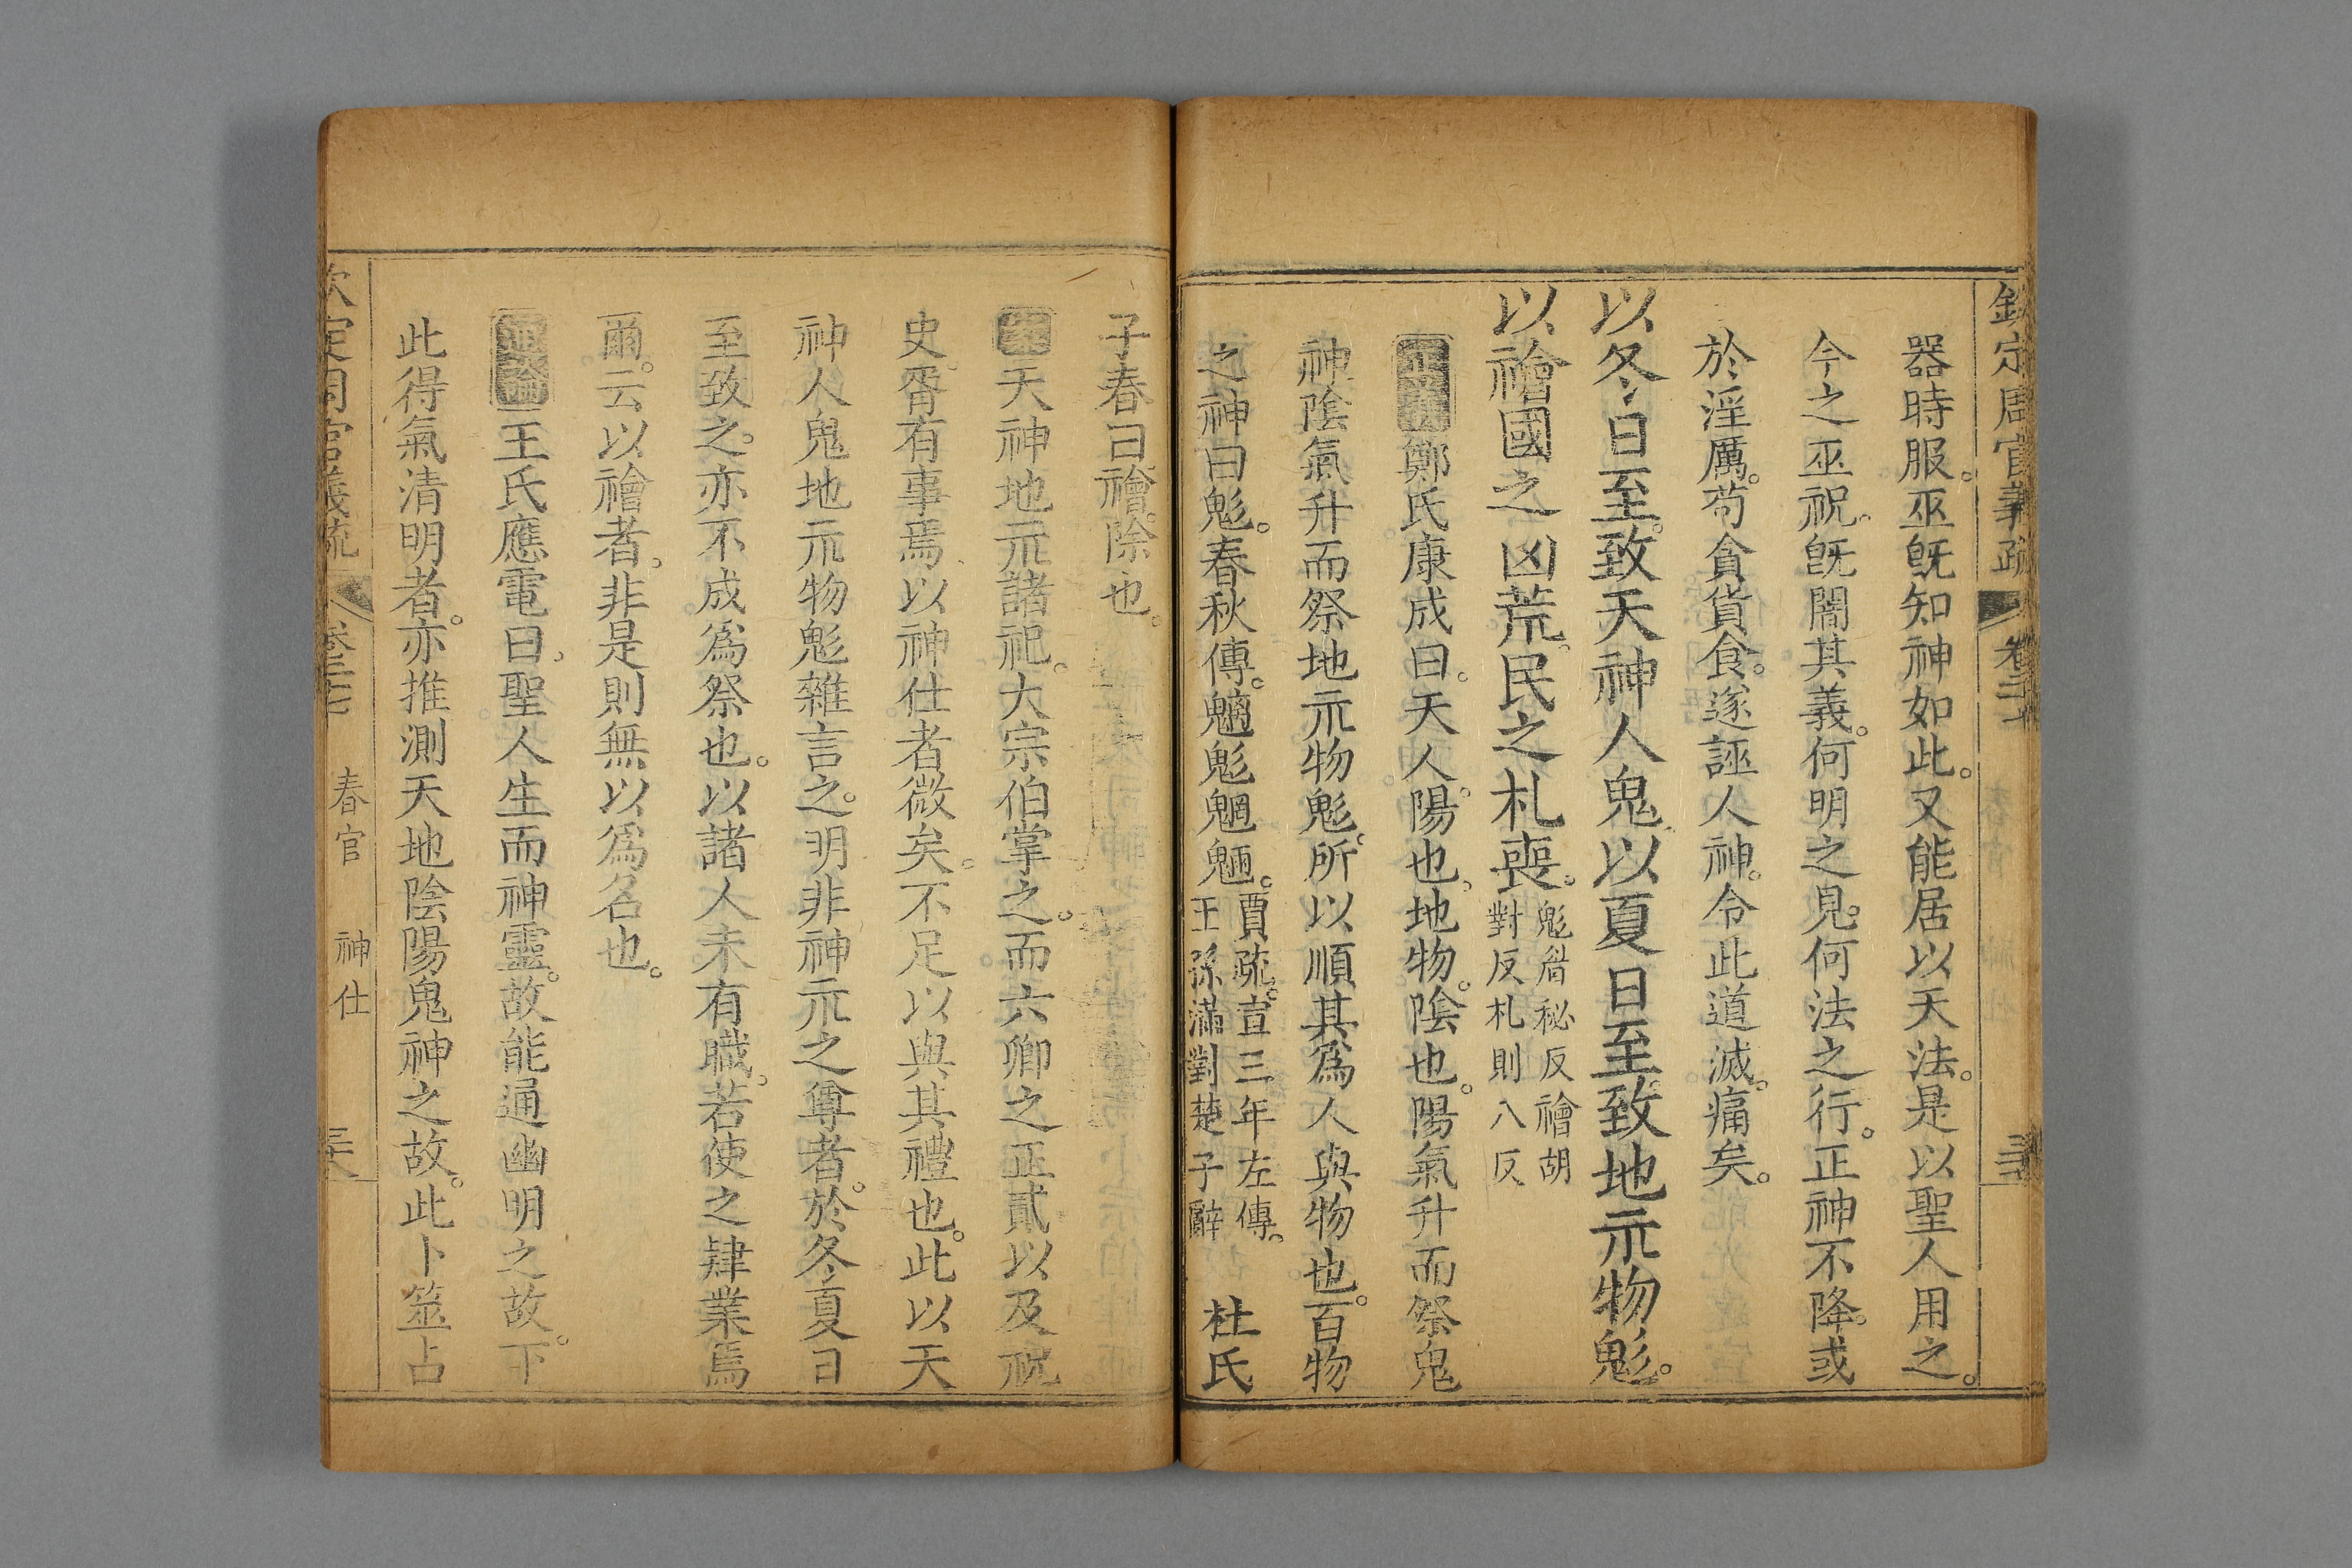 欽定周官義疏 卷二十七
器時服。巫旣知神如此。又能居以天法。是以聖人用之。
今之巫祝。旣闇其義。何明之見。何法之行。正神不降。或
於淫厲。苟貪貨食。遂誣人神。令此道滅。痛矣。
以冬日至。致天神人鬼。以夏日至。致地示物鬽。
以禬國之凶荒。民之札喪。
鬽眉秘反禬胡
對反札則八反
鄭氏康成曰。天人。陽也。地物。陰也。陽氣升而祭鬼
神。陰氣升而祭地示物鬽。所以順其爲人與物也。百物
之神曰鬽。春秋傳。魑鬽魍魎。
賈疏。宣三年左傳。
王孫滿對楚子辭
杜氏
子春曰。禬。除也。
天神地示諸祀。大宗伯掌之。而六卿之正貳以及祝
史。胥有事焉。以神仕者微矣。不足以與其禮也。此以天
神人鬼地示物鬽雜言之。明非神示之尊者。於冬夏日
至致之。亦不成爲祭也。以諸人未有職。若使之肄業焉
爾。云以禬者。非是則無以爲名也。
王氏應電曰。聖人生而神靈。故能通幽明之故。下
此得氣清明者。亦推測天地陰陽鬼神之故。此卜筮占
定周官義疏 卷二十七 春官 神仕 三十八